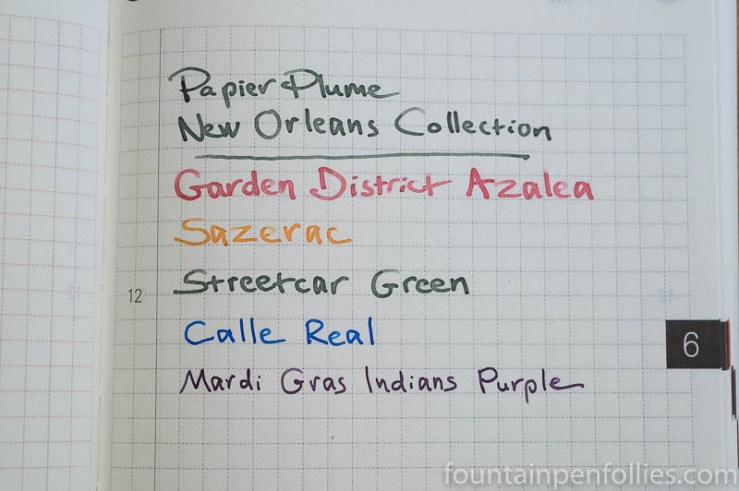 Papier Plume
New Orleans Collection
Garden District Azalea
Sazerac
Streetcar Green
12
Calle Real
6
Mardi Gras Indians Purple
fountainpenfollies.com